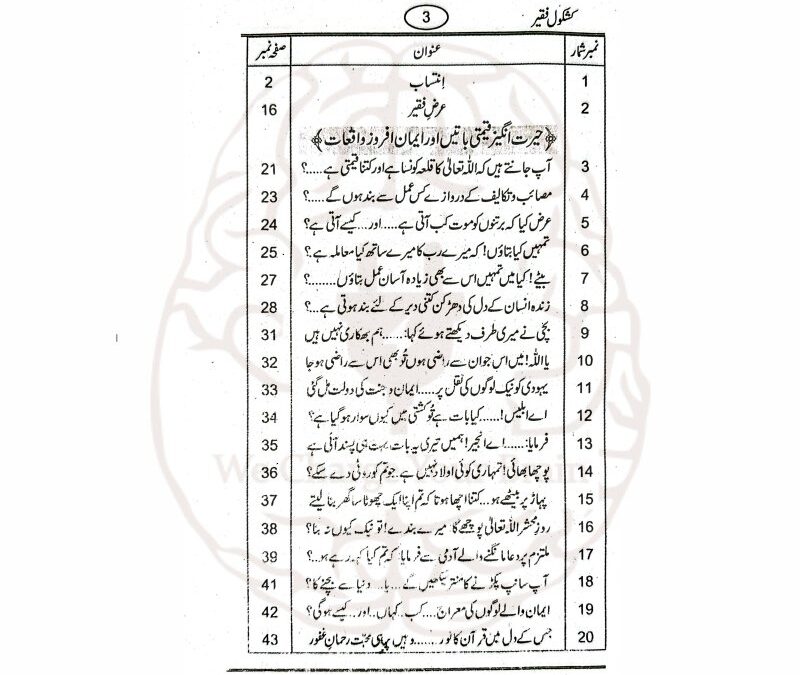 کشکول فقیر 3
نمبر شمار عنوان صفحہ نمبر
1 انتساب 2
2 عرض فقیر 16
﴿حیرت انگیز قیمتی باتیں اور ایمان افروز واقعات﴾
3 آپ جانتے ہیں کہ اللہ تعالیٰ کا قلعہ کونسا ہے اور کتنا قیمتی ہے.....؟ 21
4 مصائب و تکالیف کے دروازے کس عمل سے بند ہوں گے.....؟ 23
5 عرض کیا کہ برتنوں کو موت کب آتی ہے.....اور....کیسے آتی ہے؟ 24
6 تمہیں کیا بتاؤں! کہ میرے رب کا میرے ساتھ کیا معاملہ ہے؟ 25
7 بیٹے! کیا میں تمہیں اس سے بھی زیادہ آسان عمل بتاؤں........؟ 27
8 زندہ انسان کے دل کی دھڑکن کتنی دیر کے لئے بند ہوتی ہے...؟ 28
9 بچی نے میری طرف دیکھتے ہوئے کہا:......ہم بھکاری نہیں ہیں 31
10 یا اللہ! میں اس جوان سے راضی ہوں تُو بھی اس سے راضی ہو جا 32
11 یہودی کو نیک لوگوں کی نقل پر.....ایمان و جنت کی دولت مل گئی 33
12 اے ابلیس!......کیا بات ہے تُو کشتی میں کیوں سوار ہو گیا ہے؟ 34
13 فرمایا:......اے انجیر! ہمیں تیری یہ بات بہت ہی پسند آئی ہے 35
14 پوچھا بھائی! تمہاری کوئی اولاد نہیں ہے جو تم کو روٹی دے سکے؟ 36
15 پہاڑ پر بیٹھے ہو...کتنا اچھا ہوتا کہ تم اپنا ایک چھوٹا سا گھر بنا لیتے 37
16 روزِ محشر اللہ تعالیٰ پوچھے گا میرے بندے! تو نیک کیوں نہ بنا؟ 38
17 ملتزم پر دعا مانگنے والے آدمی سے فرمایا: کہ تم کیا کہہ رہے ہو..؟ 39
18 آپ سانپ پکڑنے کا منتر سیکھیں گے...یا...دنیا سے بچنے کا؟ 41
19 ایمان والے لوگوں کی معراج....کب..کہاں..اور..کیسے ہوگی؟ 42
20 جس کے دل میں قرآن کا نور......وہیں پہ ہی محبت رحمانِ غفور 43